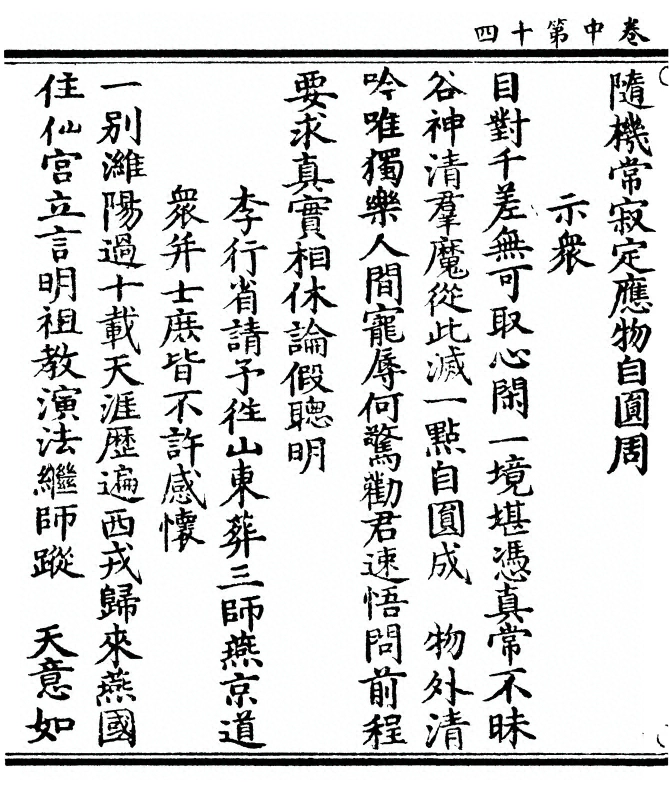 卷中第十四
隨機常寂定應物自圓周
示衆
目對千差無可取心閑一境堪憑真常不昧
谷神清羣魔從此滅一點自圓成　物外清
吟唯獨樂人間寵辱何驚勸君速悟問前程
要求真實相休論假聰明
李行省請予徃山東葬三師燕京道
衆并士庶皆不許感懷
一別濰陽過十載天涯歷遍西戎歸來燕國
住仙宮立言明祖教演法繼師蹤　天意如